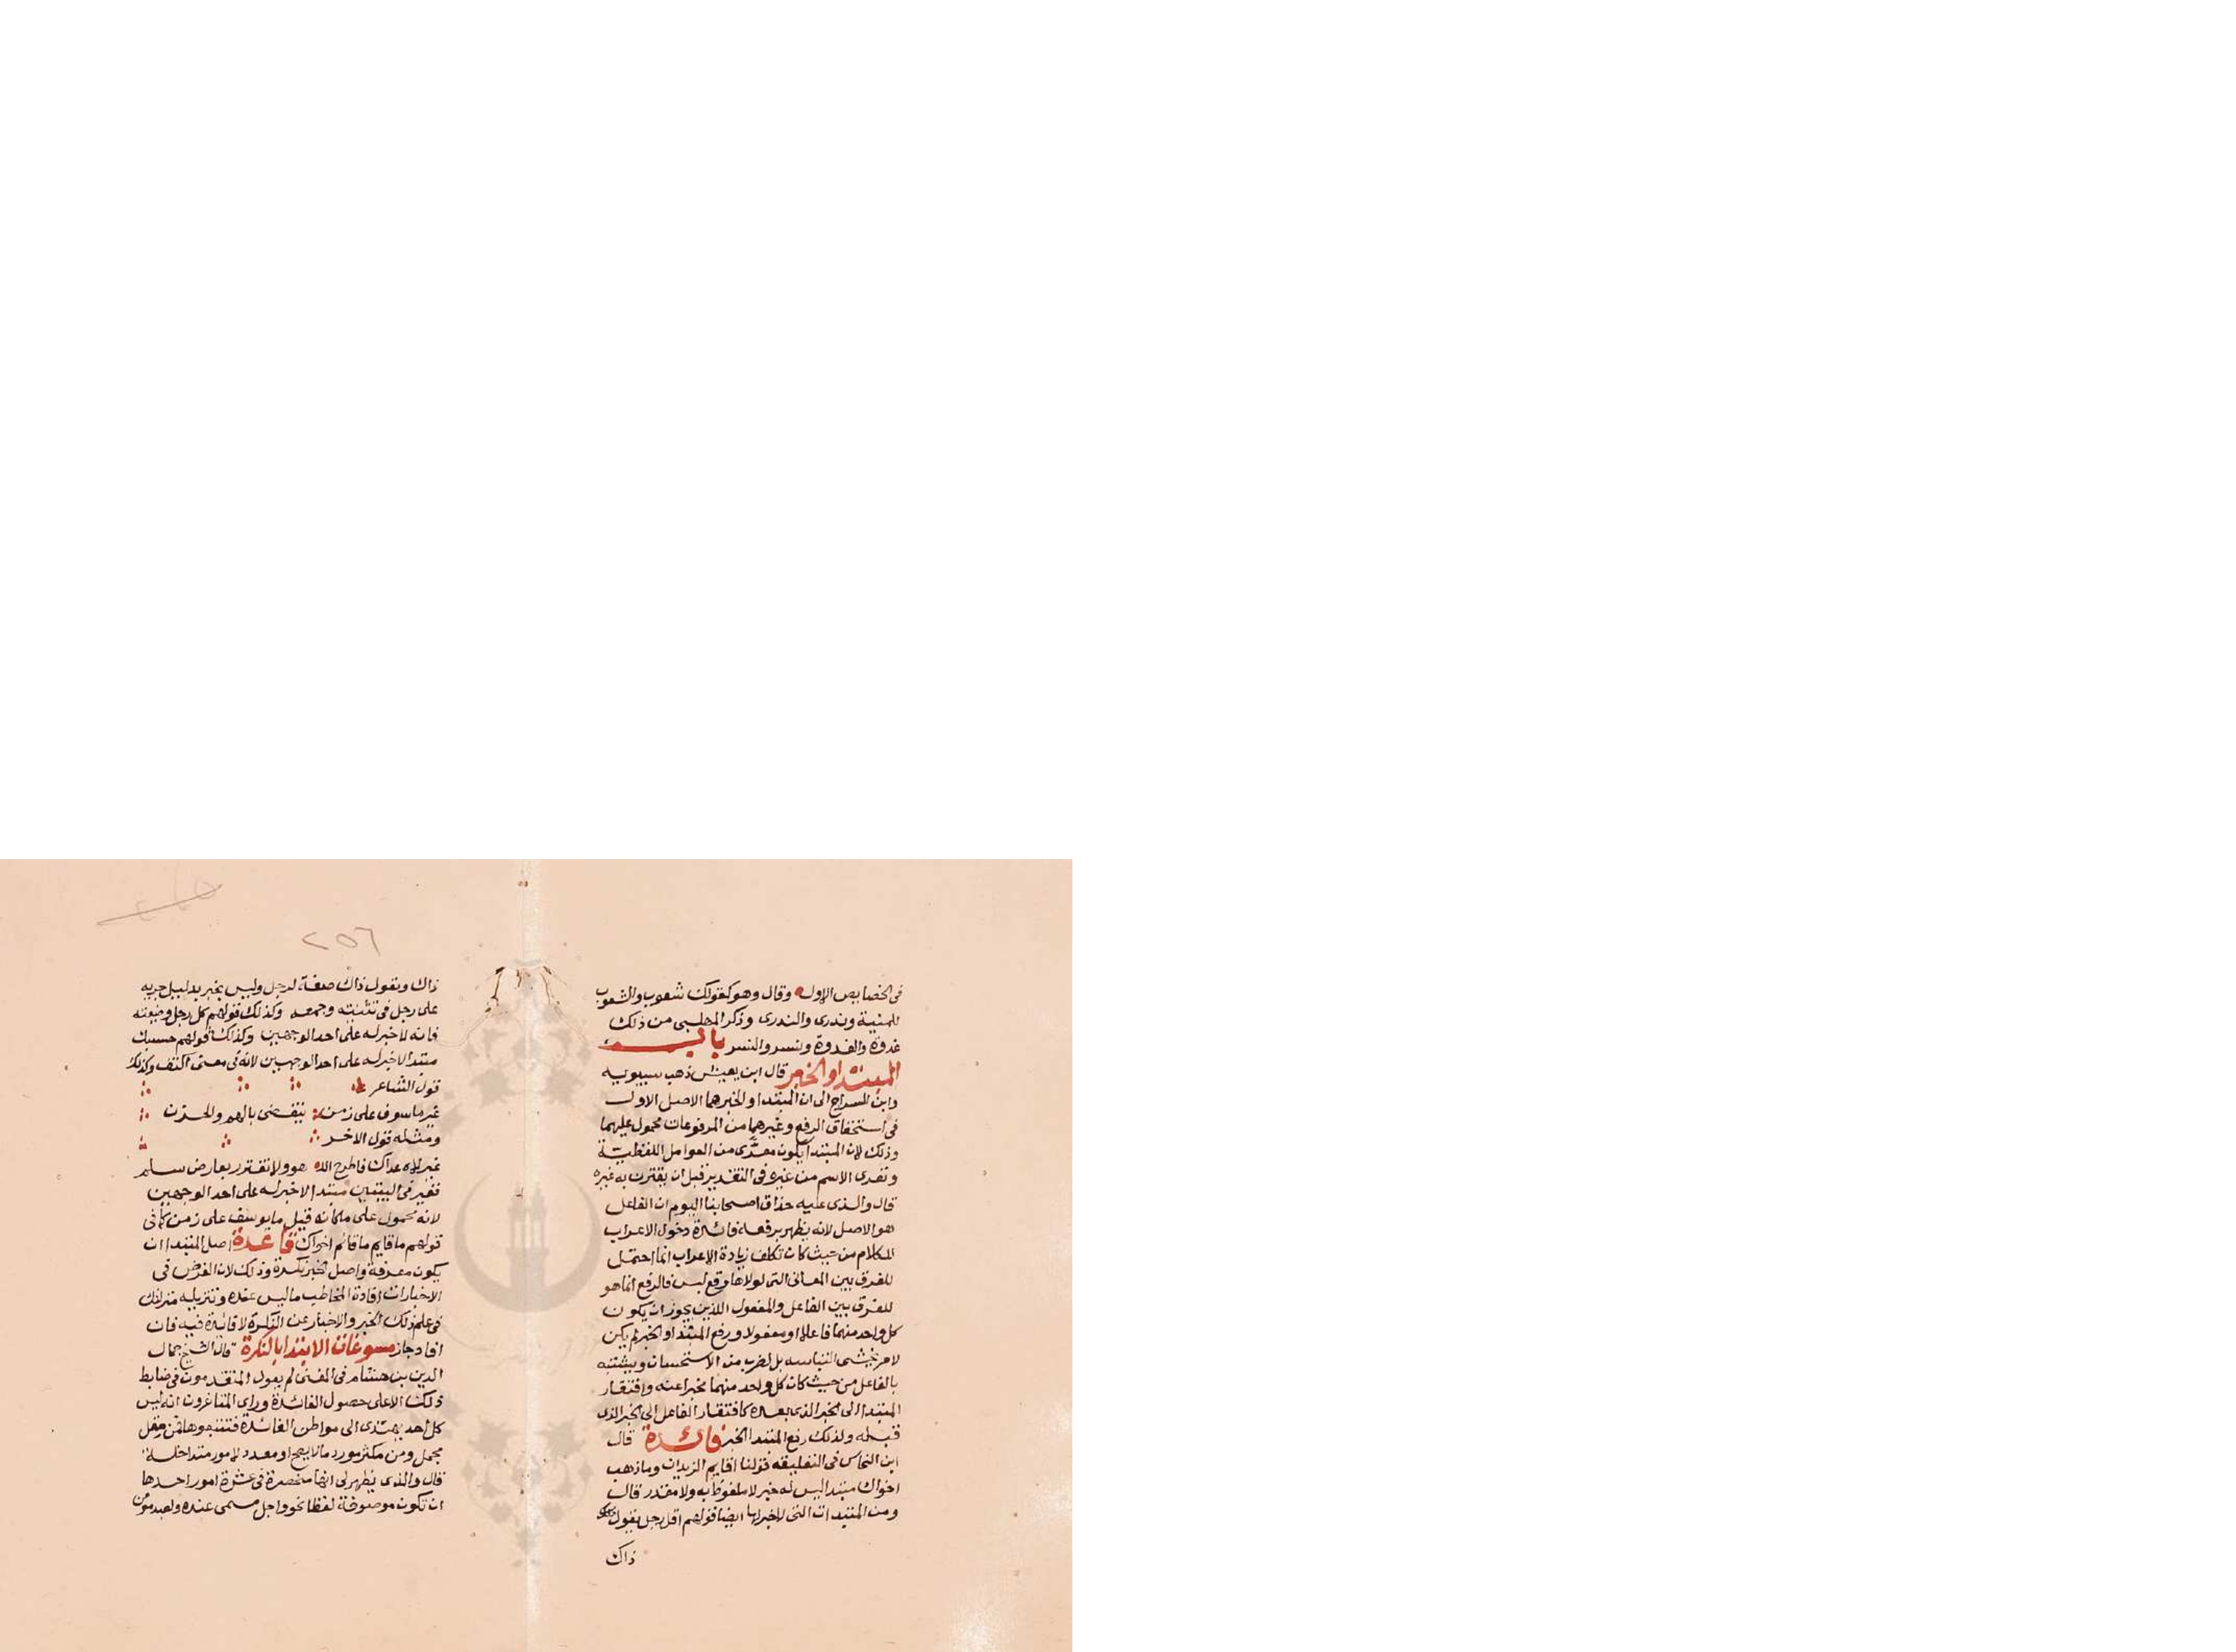 في الخصايص الاول وقال وهو كقولك شعوب والشعوب
للمنية وندرى والندرى وذكر المهلبى من ذلك
غدوة والغدوة ونسر والنسر باب
المبتدا والخبر قال ابن يعيش ذهب سيبويه
وابن السراج الى ان المبتدا والخبر هما الاصل الاول
فى استحقاق الرفع وغيرهما من المرفوعات محمول عليهما
وذلك لان المبتدا يكون معرى من العوامل اللفظية
وتعرى الاسم من غيره فى التقدير قبل ان يقترن به غيره
قال والذى عليه حذاق اصحابنا اليوم ان الفاعل
هو الاصل لانه يظهر برفعه فائدة دخول الاعراب
للكلام من حيث كان تكلف زيادة الاعراب انما احتمل
للفرق بين المعانى التى لولاها وقع لبس فالرفع انما هو
للفرق بين الفاعل والمفعول اللذين يجوز ان يكون
كل واحد منهما فاعلا او مفعولا ورفع المبتدا والخبر لم يكن
لامر يخشى التباسه بل لضرب من الاستحسان ويشتبه
بالفاعل من حيث كان كل واحد منهما مخبرا عنه وافتقار
المبتدا الى الخبر الذى بعده كافتقار الفاعل الى الخبر الذى
قبله ولذلك رفع المبتدا الخبر فائدة قال
ابن النحاس فى التعليقه قولنا اقايم الزيدان وما ذهب
اخواك مبتدا ليس له خبر لا ملفوظ به ولا مقدر قال
ومن المبتدات التى لا خبر لها ايضا قولهم اقل رجل يقول
ذاك
٢٥٦
ذاك ونقول ذاك صفة لرجل وليس بخبر بدليل جريه
على رجل فى تثنيته وجمعه وكذلك قولهم كل رجل وضيعته
فانه لا خبر له على احد الوجهين وكذلك قولهم حسبك
مبتدا لا خبر له على احد الوجهين لانه فى معنى اكتف وكذلك
قول الشاعر
غير ماسوف على زمن ينقضى بالهم والحزن
ومثله قول الاخر
غير لاه عداك فاطرح اللهو ولا تغترر بعارض سلم
فغير فى البيتين مبتدا لا خبر له على احد الوجهين
لانه محمول على ما كأنه قيل ما يوسف على زمن كما فى
قولهم ما قايم ما قائم اخواك قاعدة اصل المبتدا ان
يكون معرفة واصل الخبر نكرة وذلك لان الغرض فى
الاخبارات افادة المخاطب ما ليس عنده وتنزيله منزلتك
فى علم ذلك الخبر والاخبار عن النكرة لا فائدة فيه فان
افاد جاز مسوغات الابتدا بالنكرة قال الشيخ جمال
الدين بن هشام فى المغنى لم يعول المتقدمون فى ضابط
ذلك الا على حصول الفائدة وراى المتاخرون انه ليس
كل احد يهتدى الى مواطن الفائدة فتتبعوها فمن مقل
مخل ومن مكثر مورد ما لا يصح او معدد لامور متداخلة
قال والذى يظهر لى انها منحصرة فى عشرة امور احدها
ان تكون موصوفة لفظا نحو واجل مسمى عنده ولعبد مومن